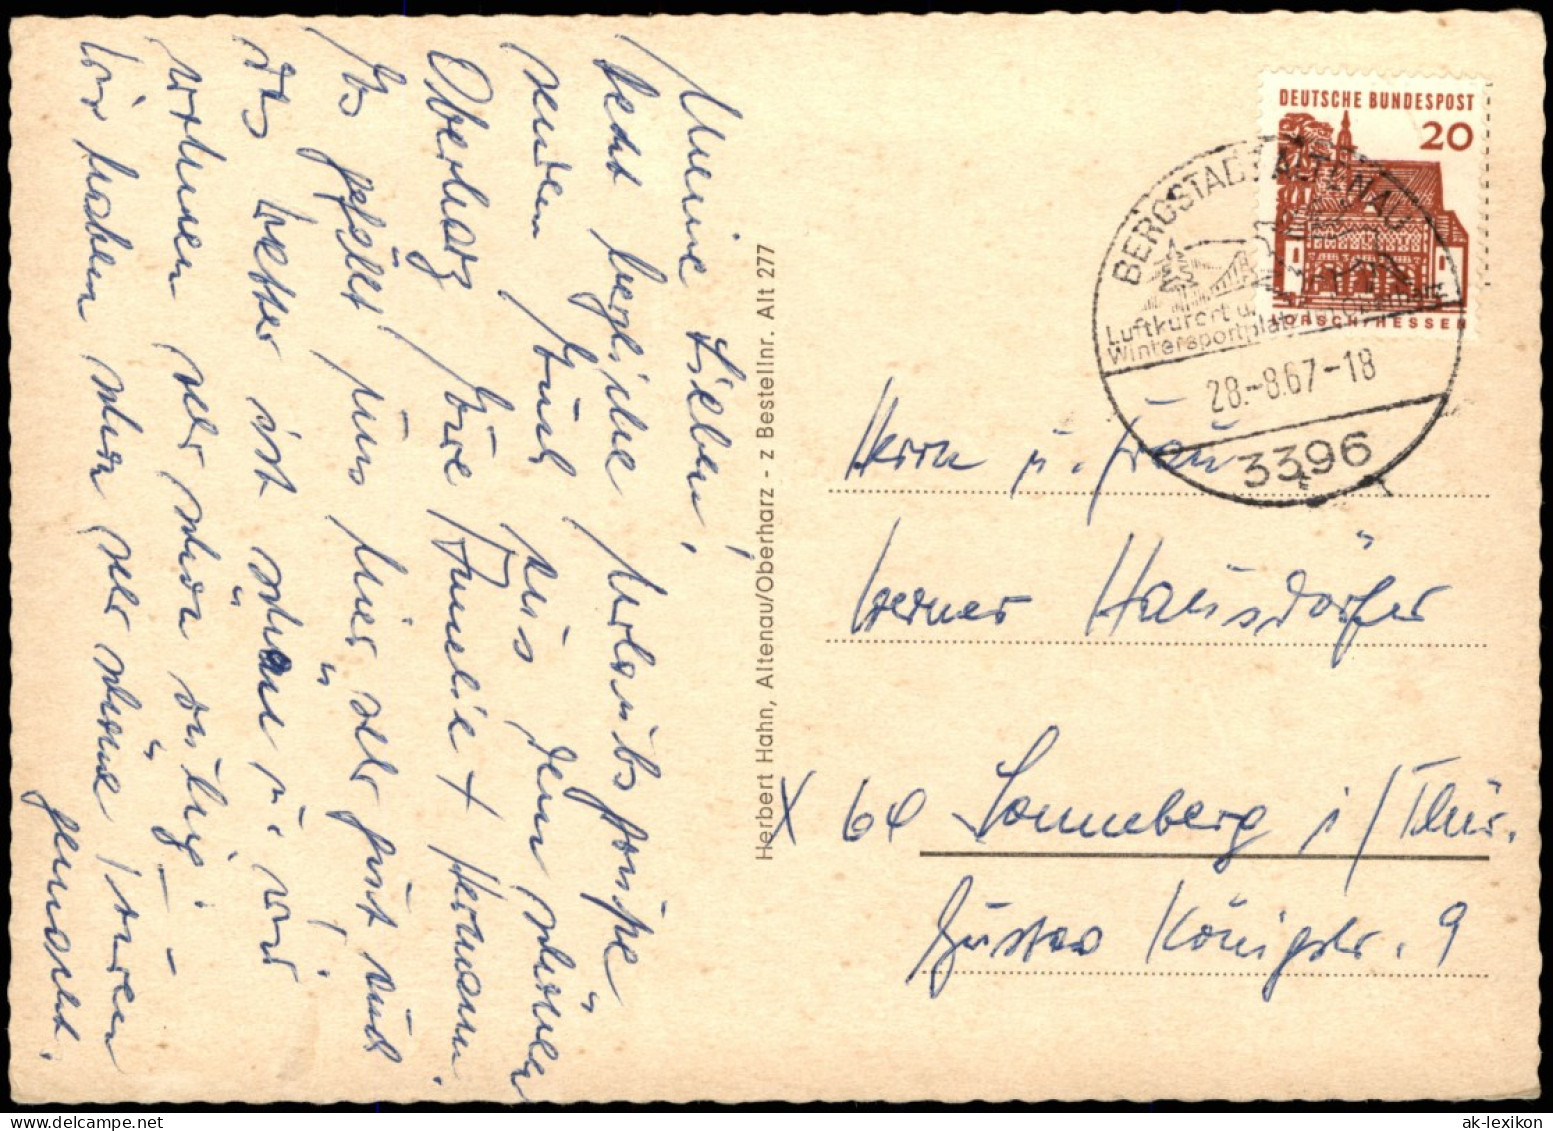 Meine Lieben!
Recht herzliche Urlaubsgrüße
senden Euch aus dem schönen
Oberharz Eure Amelie + Hermann.
Es gefällt uns hier sehr gut und
das Wetter ist schön u. wir
wohnen sehr schön ruhig. –
Wir haben schon sehr schöne Touren
gemacht.
Herbert Hahn, Altenau/Oberharz - z Bestellnr. Alt 277
DEUTSCHE BUNDESPOST
20
LORSCH/HESSEN
BERGSTADT ALTENAU
Luftkurort u.
Wintersportplatz im Oberharz
28.-8.67-18
3396
Herrn u. Frau
Werner Hausdörfer
X 64 Sonneberg i/Thür.
Gustav Königstr. 9
ak-lexikon